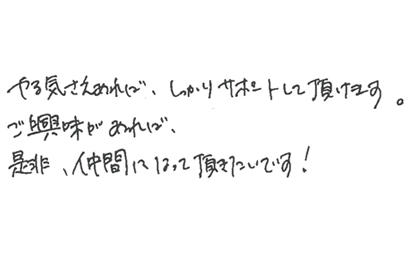 やる気さえあれば、しっかりサポートして頂けます。
ご興味があれば、
是非、仲間になって頂きたいです!